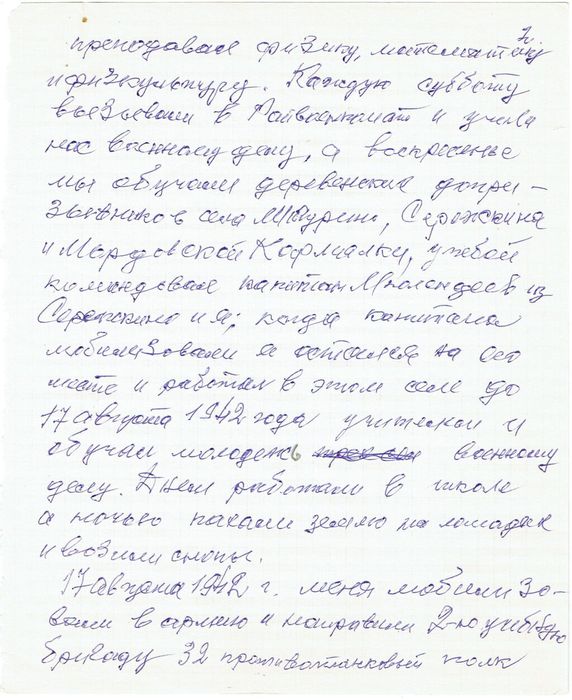 7.
преподавал физику, математику
и физкультуру. Каждую субботу
вызывали в Райвоенкомат и учили
нас военному делу, а воскресенье
мы обучали деревенских допри-
зывников села Шугурни, Сережкина
и Мордовской Кармалки, учёбой
командовал капитан из
Сережкино и я; когда капитана
мобилизовали я остался на его
месте и работал в этом селе до
17 августа 1942 года учителем и
обучал молодежь военному
делу. Днем работали в школе
а ночью пахали землю на лошадях
и возили снопы.
17 августа 1942 г. меня мобилизо-
вали в армию и направили 2-ю учебную
бригаду 32 противотанковый полк